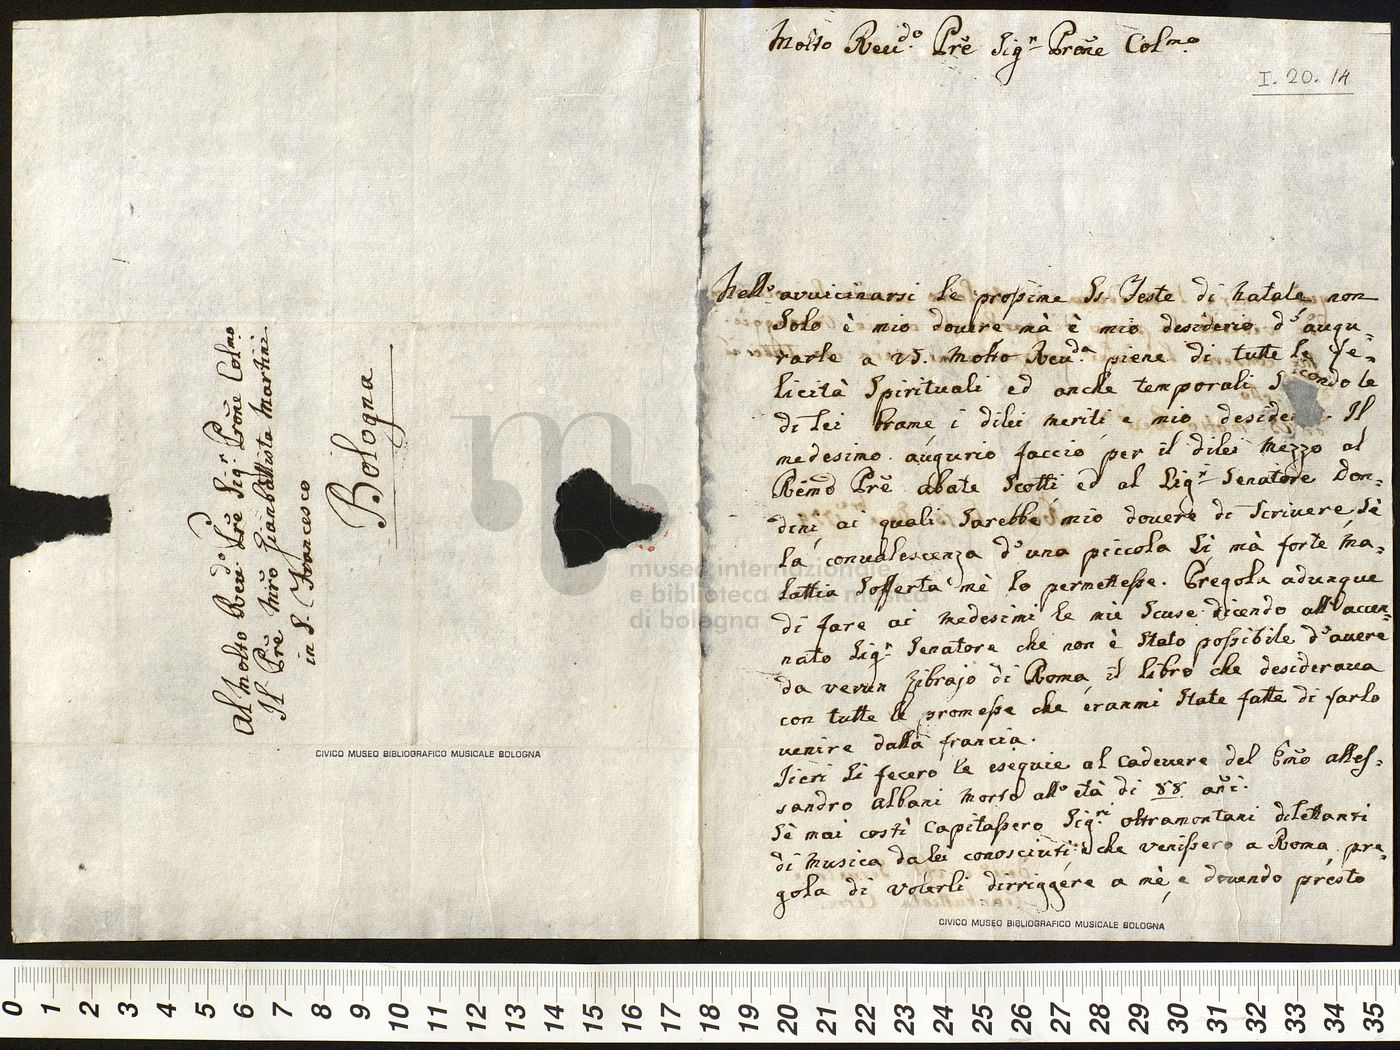 Al Molto Reu.do Pre Sig.r Prone Colmo
Il Pre Mro Gianbattista Martini
in S. Francesco
Bologna
CIVICO MUSEO BIBLIOGRAFICO MUSICALE BOLOGNA
museo internazionale
e biblioteca della musica
di bologna
Molto Reu.do Pre Sig.r Prone Colmo
I. 20. 14
Nell'avuicinarsi le prossime SS Feste di Natale non
Solo è mio douere mà è mio desiderio d'augu-
rarle a VS. Molto Reu.da piene di tutte le Fe-
licità Spirituali ed anche temporali Secondo le
di lei brame i di lei meriti e mio deside Il
medesimo augurio faccio per il di lei mezzo al
Remo Pre abate Scotti ed al Sig.r Senatore Don-
dini ai quali Sarebbe mio douere di Scriuere Sè
la conualescenza d'una piccola Sì mà forte Ma-
lattia Sofferta mè lo permettesse. Pregola adunque
di fare ai medesimi le mie Scuse dicendo all'accen-
nato Sig.r Senatore che non è Stato possibile d'auere
da verun Librajo di Roma il libro che desideraua
con tutte le promesse che eranmi State fatte di farlo
venire dalla francia.
Jieri Si fecero le esequie al Cadauere del Emo Alles-
sandro Albani Morto all'età di 88 añi.
Sè mai costì Capitassero Sig.ri oltramontani dilettanti
di Musica da lei conosciuti che venissero a Roma pre-
gola di volerli dirriggere a mè, e douendo presto
CIVICO MUSEO BIBLIOGRAFICO MUSICALE BOLOGNA
0 1 2 3 4 5 6 7 8 9 10 11 12 13 14 15 16 17 18 19 20 21 22 23 24 25 26 27 28 29 30 31 32 33 34 35